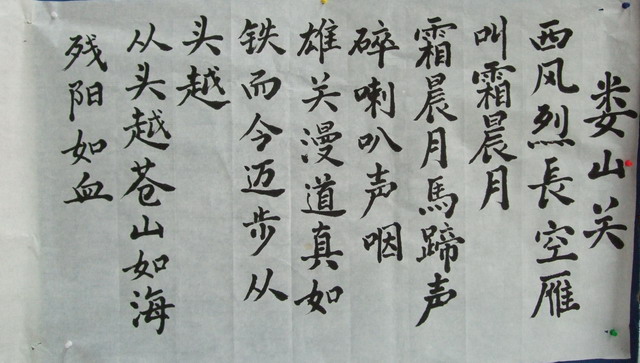 娄山关
西风烈長空雁
叫霜晨月
霜晨月馬蹄声
碎喇叭声咽
雄关漫道真如
铁而今迈步从
头越
从头越苍山如海
残阳如血